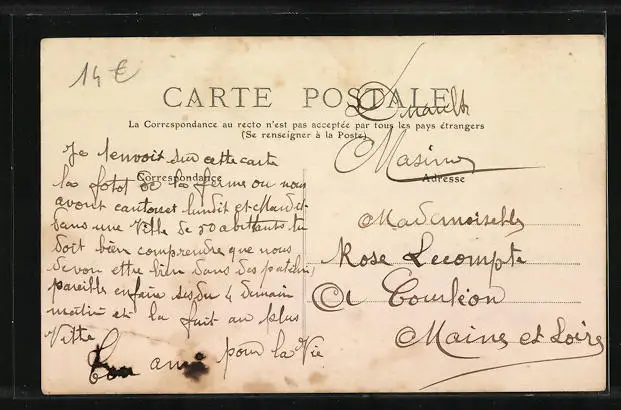 14 €
CARTE POSTALE
La Correspondance au recto n'est pas acceptée par tous les pays étrangers
(Se renseigner à la Poste)
Correspondance
Je tenvoit sur cette carte
la fotot de la ferme ou nous
avont cantonet lundit et Mardit
dans une Ville de 50 abittants tu
doit bien comprendre que nous
devon ettre bien dans des patelin
pareille enfain sesdu 4 demain
matin et la fuit au plus
Vitte
Ton ami pour la Vie
Maxime
Adresse
Mademoiselle
Rose Lecompte
a Courléon
Maine et Loire